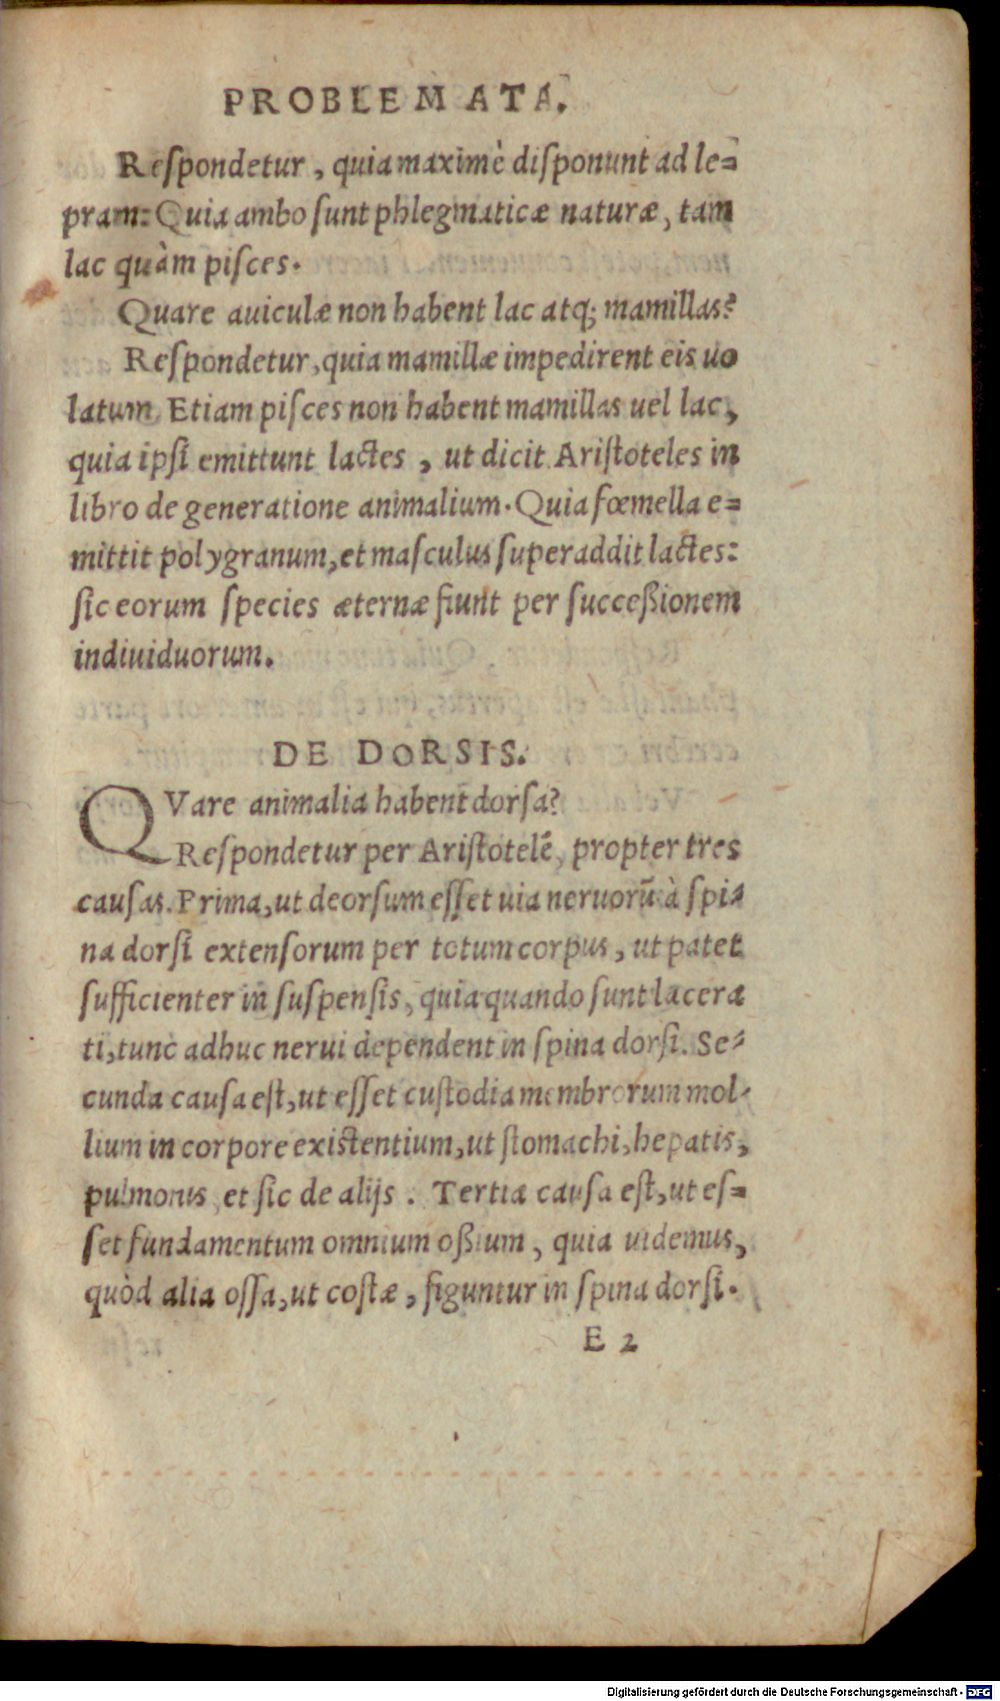 PROBLEMATA.
Respondetur, quia maximè disponunt ad le=
pram: Quia ambo sunt phlegmaticæ naturæ, tam
lac quàm pisces.
Quare auiculæ non habent lac atq; mamillas?
Respondetur, quia mamillæ impedirent eis uo
latum. Etiam pisces non habent mamillas uel lac,
quia ipsi emittunt lactes, ut dicit Aristoteles in
libro de generatione animalium. Quia fœmella e=
mittit polygranum, et masculus superaddit lactes:
sic eorum species æternæ fiunt per successionem
indiuiduorum.
DE DORSIS.
QVare animalia habent dorsa?
Respondetur per Aristotelē, propter tres
causas. Prima, ut deorsum esset uia neruorū à spi=
na dorsi extensorum per totum corpus, ut patet
sufficienter in suspensis, quia quando sunt lacera
ti, tunc adhuc nerui dependent in spina dorsi. Se=
cunda causa est, ut esset custodia membrorum mol=
lium in corpore existentium, ut stomachi, hepatis,
pulmonis, et sic de alijs. Tertia causa est, ut es=
set fundamentum omnium ossium, quia uidemus,
quòd alia ossa, ut costæ, figuntur in spina dorsi.
E 2
Digitalisierung gefördert durch die Deutsche Forschungsgemeinschaft - DFG